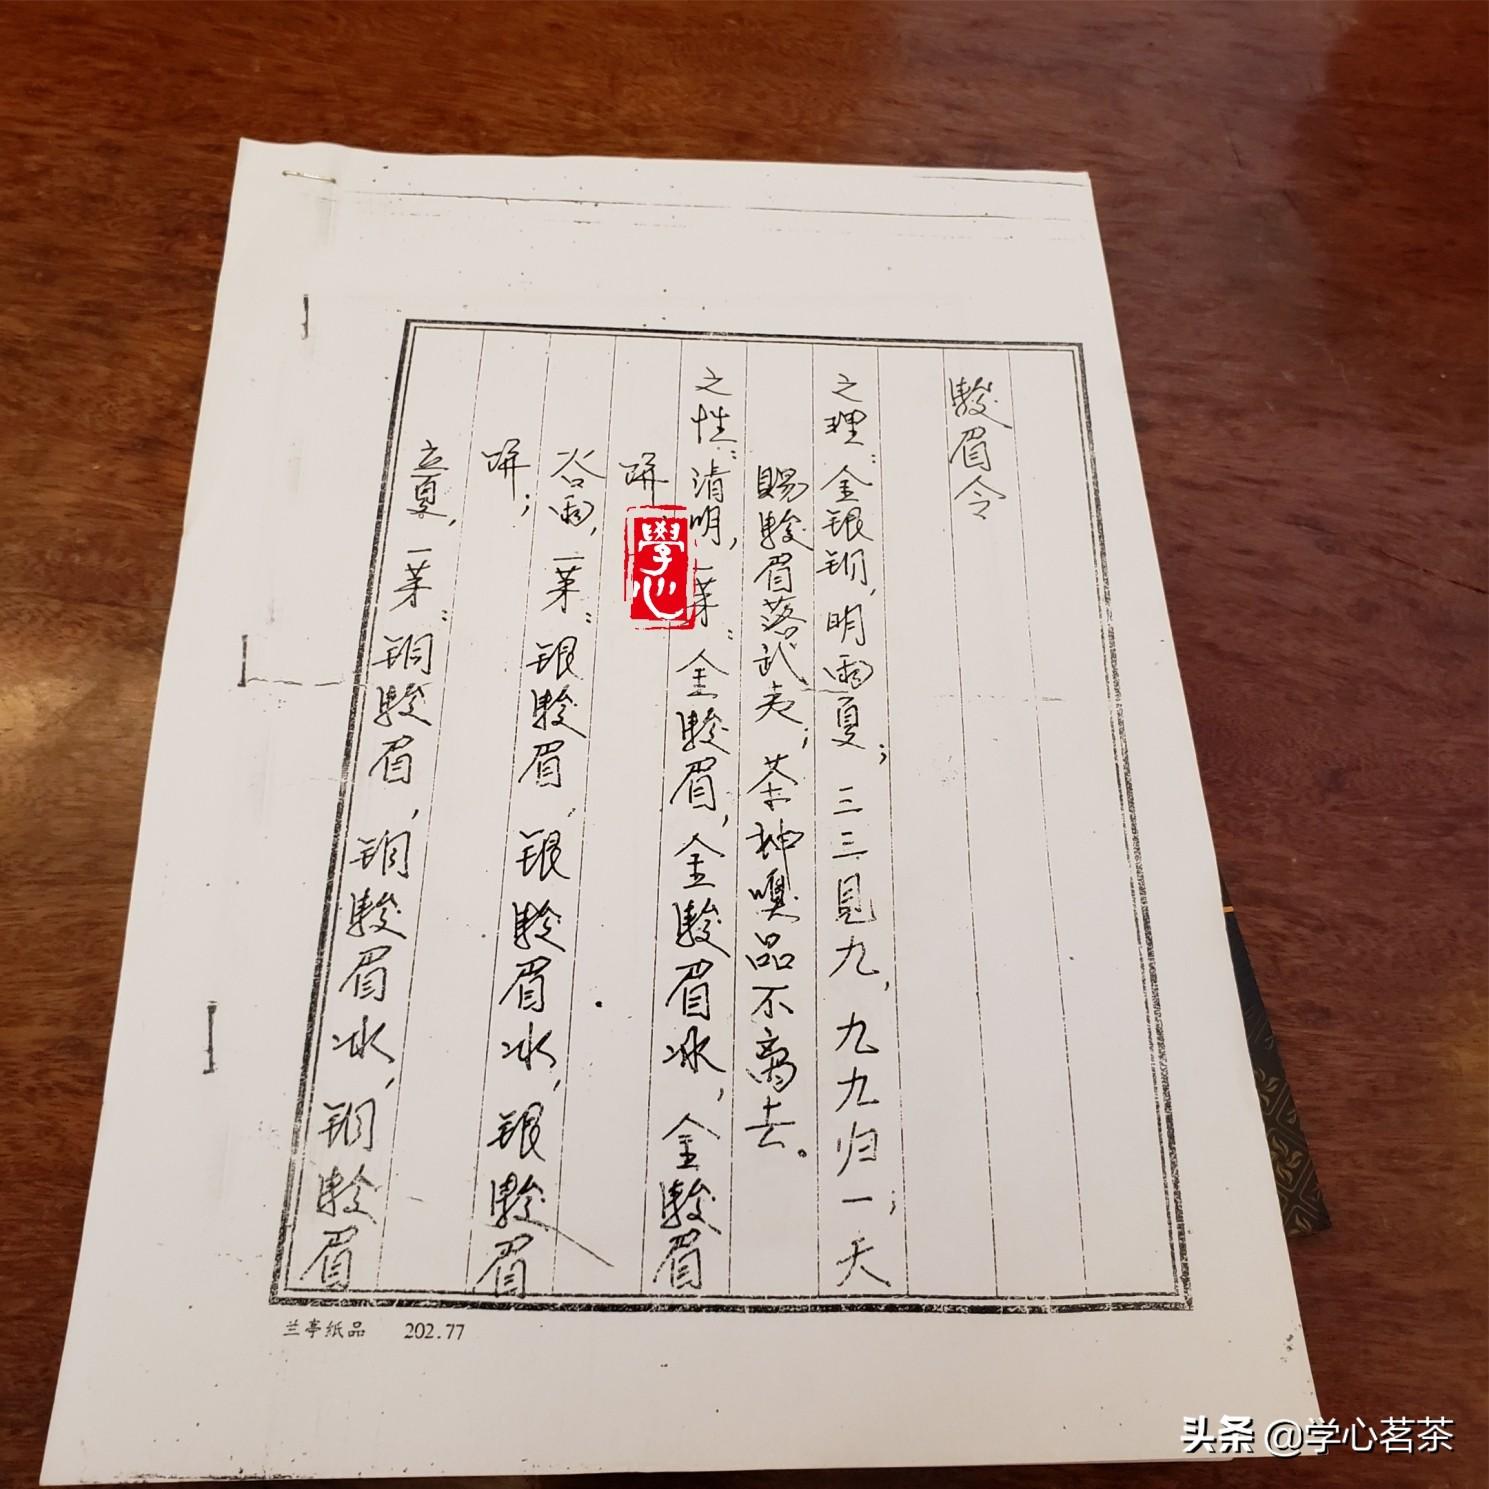 駿眉令
之理：金银铜，明雨夏；三三見九，九九归一；天
賜駿眉落武夷；茶神嗅品不离去。
之性：清明，一茉：金駿眉，金駿眉冰，金駿眉
谷雨，一茉：银駿眉，银駿眉冰，银駿眉
立夏，一茉：铜駿眉，铜駿眉冰，铜駿眉
學心
兰亭纸品 202.77
头条 @学心茗茶